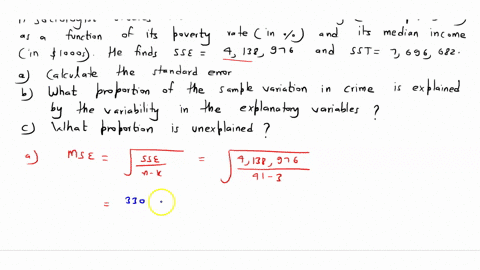 as a function of its poverty rate (in %) and its median income
(in $1000s). He finds SSE = 4,138,976 and SST = 7,696,682.
a) Calculate the standard error
b) What proportion of the sample variation in crime is explained
by the variability in the explanatory variables ?
c) What proportion is unexplained ?
a) MSE = √(SSE / n-k) = √(4,138,976 / 41-3)
= 330 .